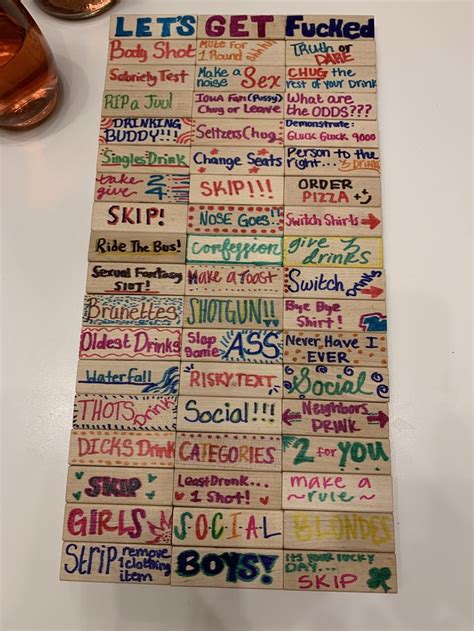 LET'S GET Fucked
Body Shot
Mute For 1 Round shhhh
Truth or DARE
Sobriety Test
Make a noise Sex
CHUG the rest of your Drink
RIP a Juul
IOWA Fan (Pussy) Chug or Leave
What are the ODDS???
DRINKING BUDDY!!!
Seltzers Chug!
Demonstrate: Gluck Gluck 9000
Singles Drink
Change Seats
Person to the right... 3 Drinks
take give 2/4
SKIP!!!
ORDER PIZZA
SKIP!
NOSE Goes!!
Switch Shirts
Ride The Bus!
Confession
give 3 drinks
Sexual Fantasy SLUT!
Make a Toast
Switch Drinks
Brunettes
SHOTGUN!!
Bye Bye Shirt!
Oldest Drinks
Slap Some ASS
Never Have I EVER
Waterfall
RISKY TEXT
Social
THOTS Drink
Social!!!
Neighbors DRINK
DICKS Drink
CATEGORIES
2 for YOU
SKIP
Least Drunk... 1 Shot!
make a ~ rule ~
GIRLS
SOCIAL
BLONDES
STRIP remove 1 clothing item
BOYS!
its YOUR LUCKY DAY... SKIP